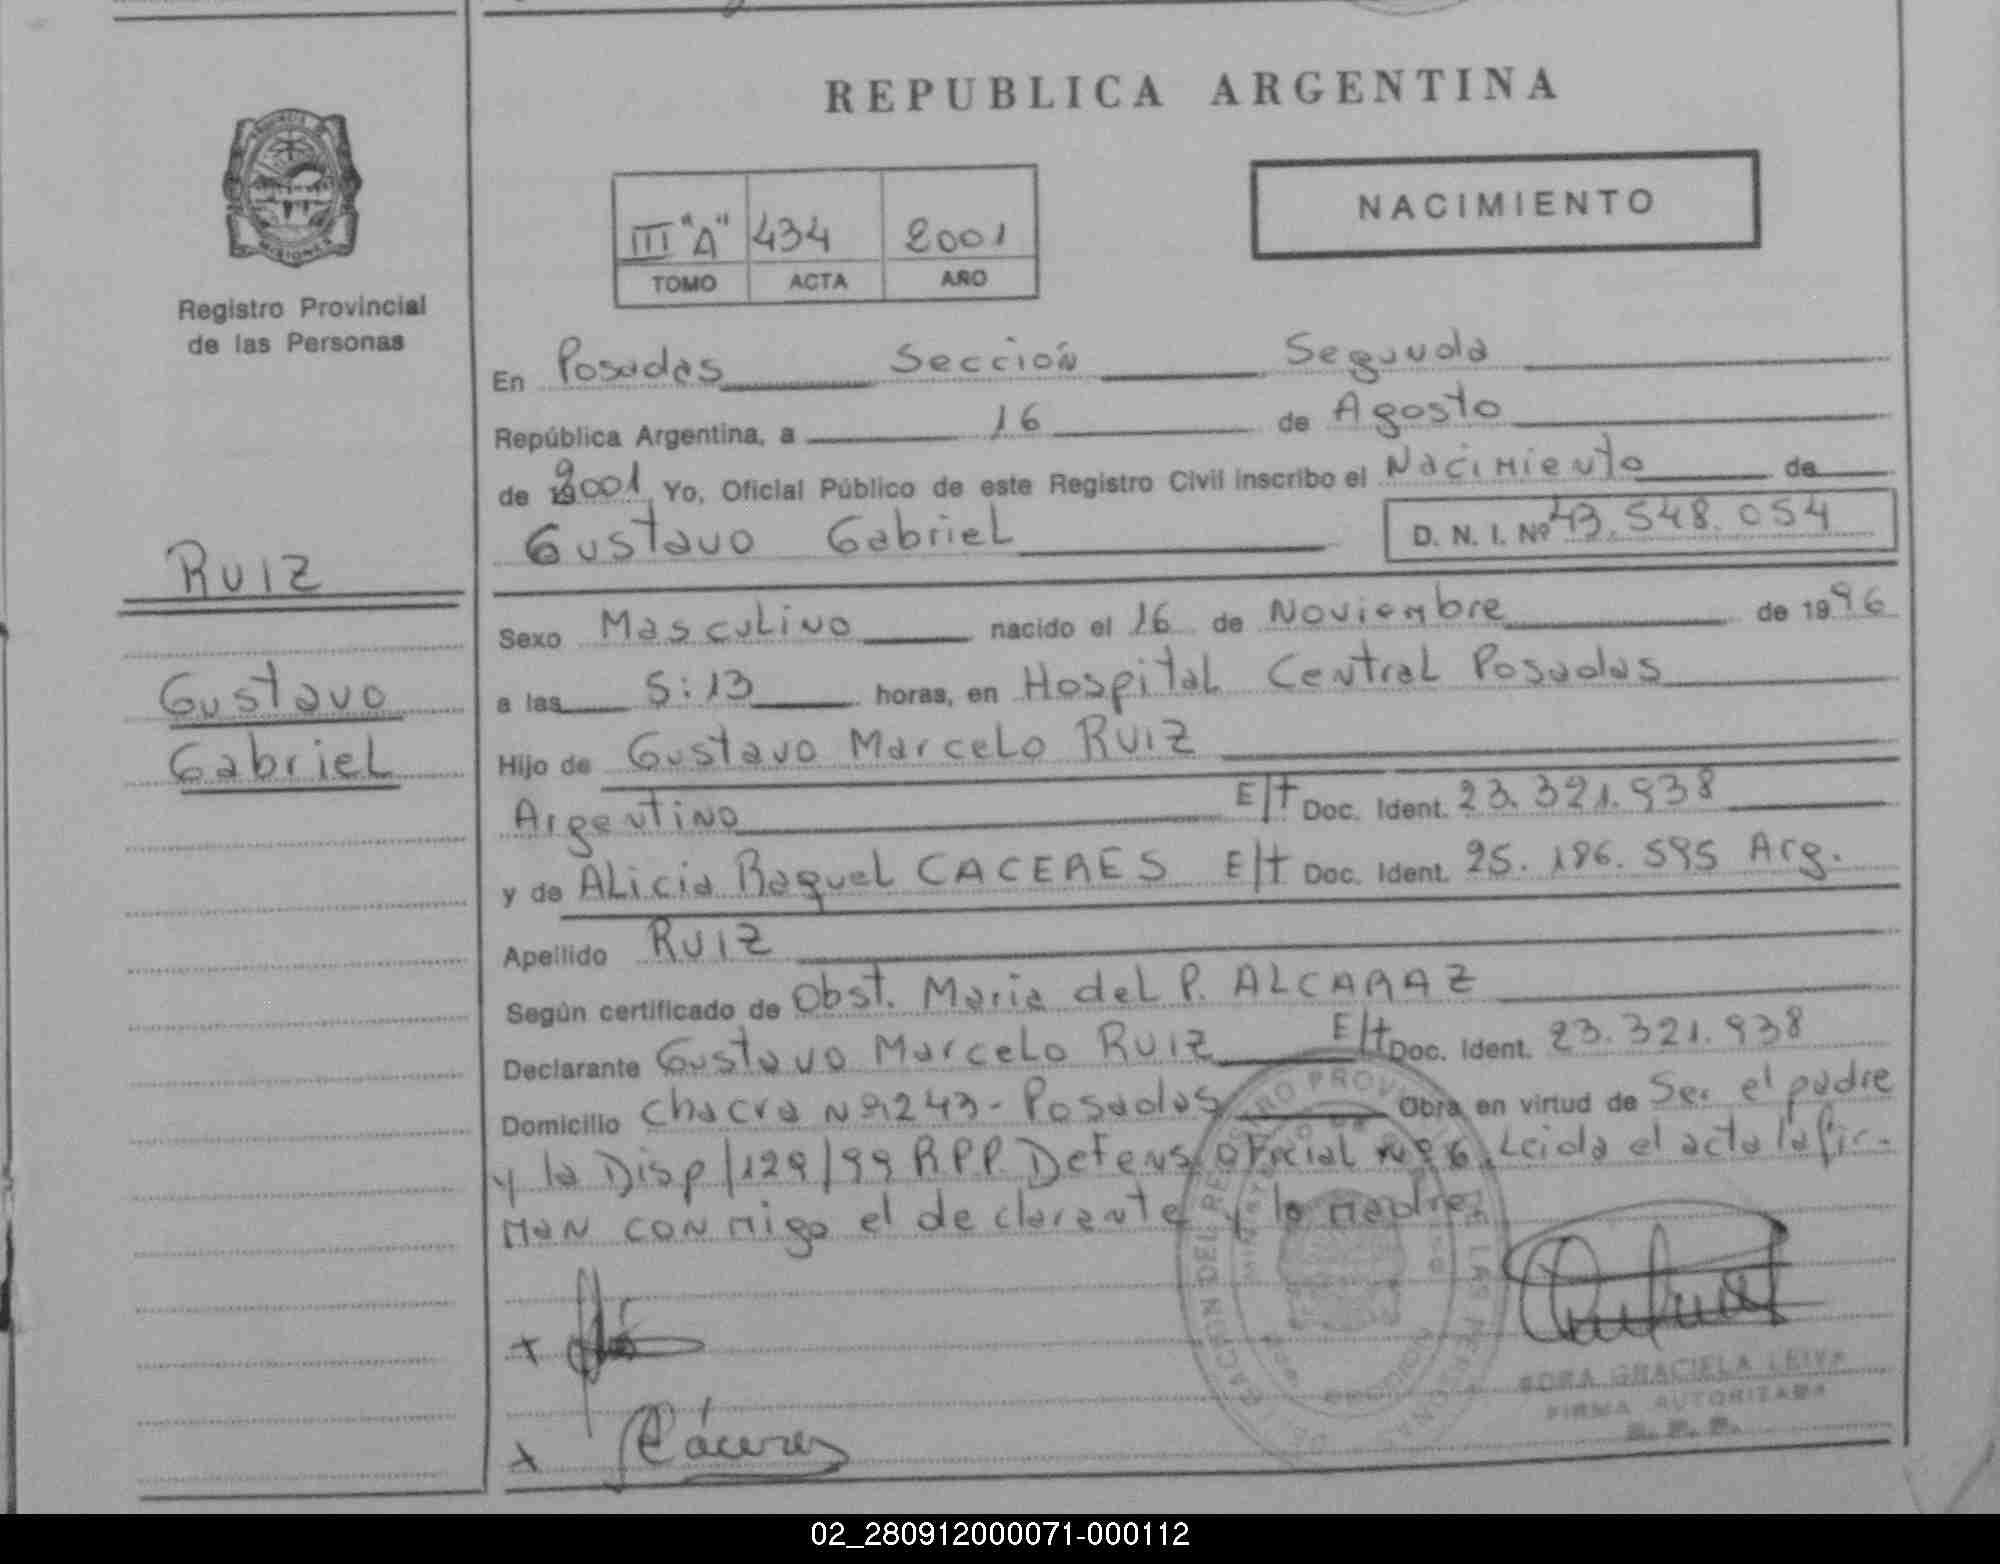 REPUBLICA ARGENTINA
NACIMIENTO
III "A" 434 2001
TOMO ACTA AÑO
MISIONES
Registro Provincial
de las Personas
RUIZ
Gustavo
Gabriel
En Posadas Sección Segunda
República Argentina, a 16 de Agosto
de 2001 Yo, Oficial Público de este Registro Civil inscribo el Nacimiento de
Gustavo Gabriel D. N. I. Nº 43.548.054
Sexo Masculino nacido el 16 de Noviembre de 1996
a las 5:13 horas, en Hospital Central Posadas
Hijo de Gustavo Marcelo RUIZ
Argentino E/t Doc. Ident. 23.321.938
y de Alicia Raquel CACERES E/t Doc. Ident. 25.186.595 Arg.
Apellido RUIZ
Según certificado de Obst. Maria del P. ALCARAZ
Declarante Gustavo Marcelo RUIZ E/t Doc. Ident. 23.321.938
Domicilio Chacra Nº 243 - Posadas Obra en virtud de Ser el padre
y la Disp/129/99 RPP. Defens Oficial Nº 6. Leida el acta la fir-
man conmigo el declarante y la madre
x
x Cáceres
GRACIELA LEIVA
FIRMA AUTORIZADA
R. P. P.
02_280912000071-000112